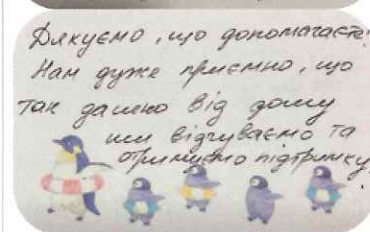 Дякуємо, що допомагаєте!
Нам дуже приємно, що
так далеко від дому
ми відчуваємо та
отримуємо підтримку.